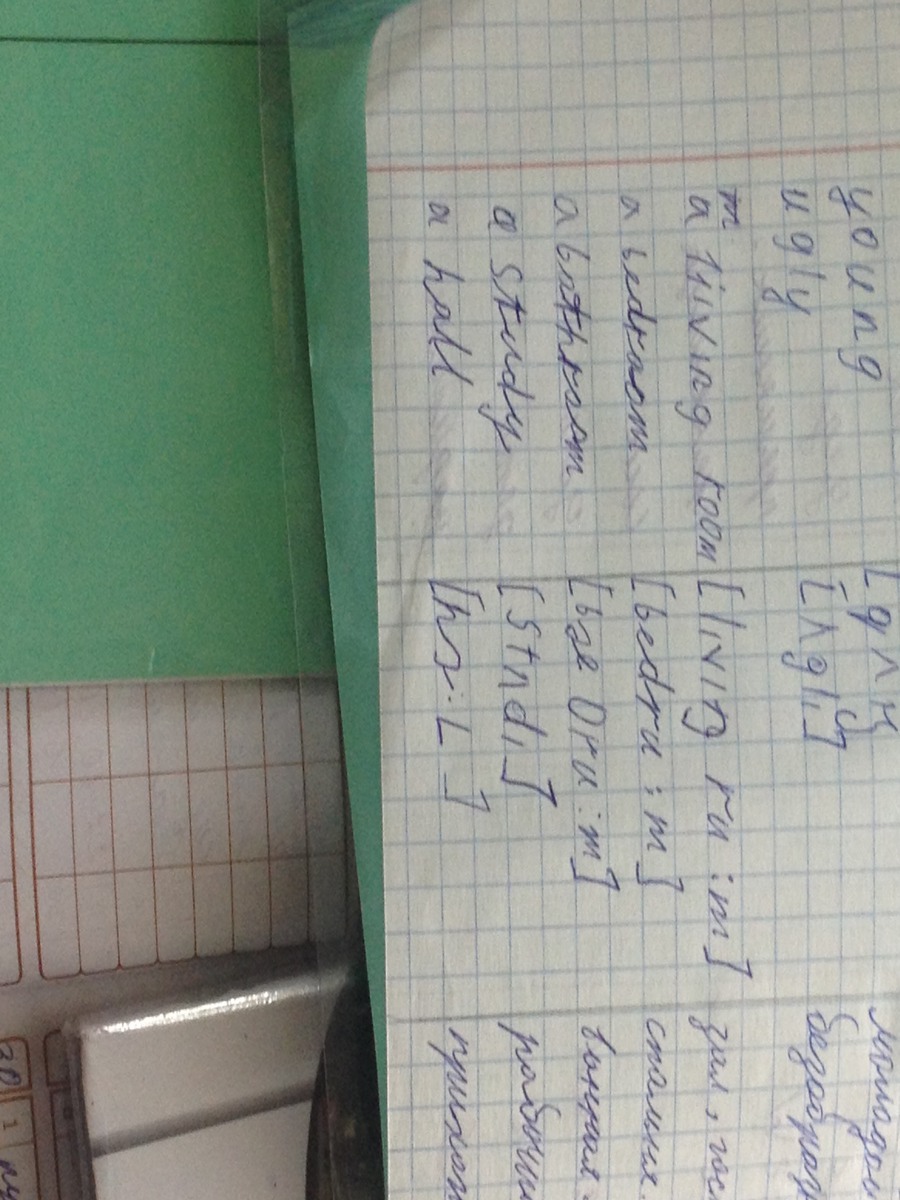 young [gʌŋ] молодой
ugly [ʌgli] безобраз
a living room [liviŋ ru:m] зал, гос
a bedroom [bedru:m] спальня
a bathroom [bæ0ru:m] ванная
a study [stʌdi] рабочи
a hall [hɔ:L] прихож